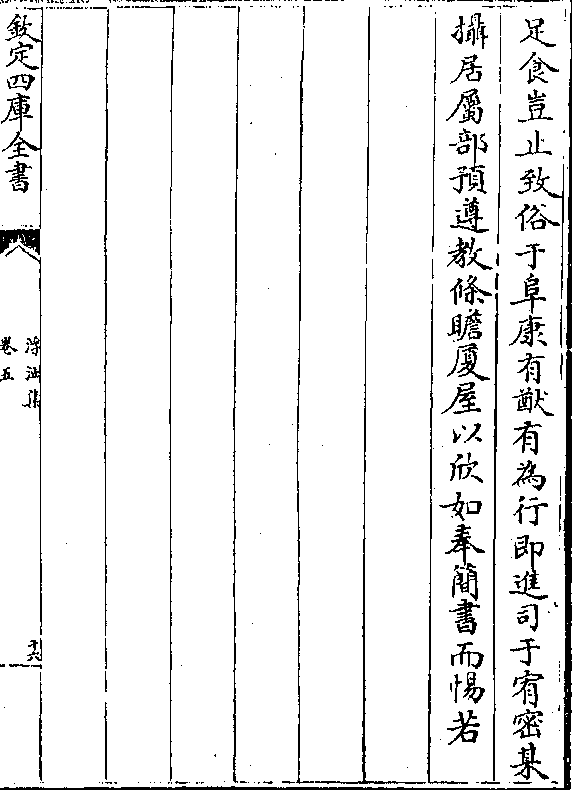 足食豈止致俗于阜康有猷有為行即進司于宥密某
攝居屬部預遵教條瞻厦屋以欣如奉簡書而惕若
欽定四庫全書
浮沚集
卷五
十六